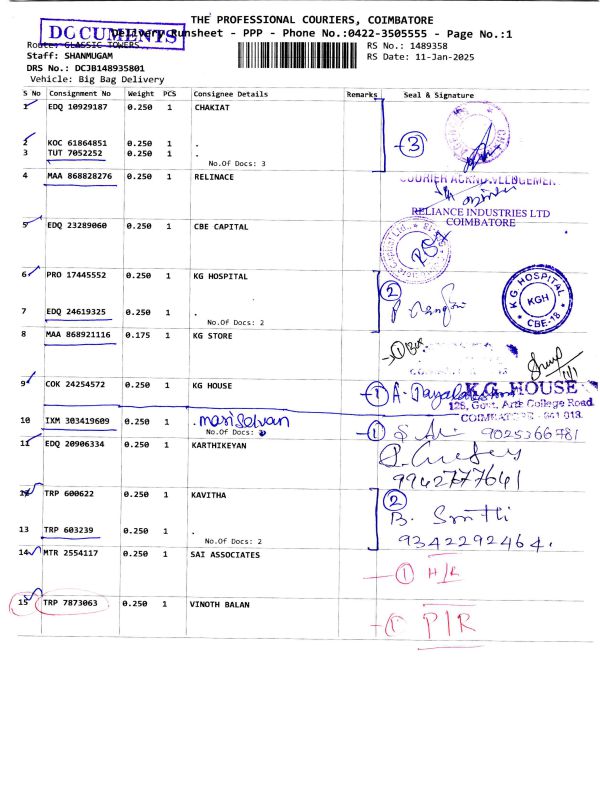 THE PROFESSIONAL COURIERS, COIMBATORE
DOCUMENTS
Delivery Runsheet - PPP - Phone No.:0422-3505555 - Page No.:1
Route: CLASSIC TOWERS
RS No.: 1489358
Staff: SHANMUGAM
RS Date: 11-Jan-2025
DRS No.: DCJB148935801
Vehicle: Big Bag Delivery
S No Consignment No Weight PCS Consignee Details Remarks Seal & Signature
1 EDQ 10929187 0.250 1 CHAKIAT
2 KOC 61864851 0.250 1 .
3 TUT 7052252 0.250 1 .
No.Of Docs: 3
3
4 MAA 868828276 0.250 1 RELINACE
RELIANCE INDUSTRIES LTD
COIMBATORE
5 EDQ 23289060 0.250 1 CBE CAPITAL
6 PRO 17445552 0.250 1 KG HOSPITAL
2
KG HOSPITAL
KGH
CBE-18
7 EDQ 24619325 0.250 1 .
No.Of Docs: 2
8 MAA 868921116 0.175 1 KG STORE
1
9 COK 24254572 0.250 1 KG HOUSE
1
K.G. HOUSE
126, Govt. Arts College Road
COIMBATORE - 641 018.
10 IXM 303419609 0.250 1 . mariselvan
No.Of Docs:
1 9025366781
11 EDQ 20906334 0.250 1 KARTHIKEYAN
9942777641
12 TRP 600622 0.250 1 KAVITHA
2
B. Smithi
13 TRP 603239 0.250 1 .
No.Of Docs: 2
9342292464.
14 MTR 2554117 0.250 1 SAI ASSOCIATES
1 H/R
15 TRP 7873063 0.250 1 VINOTH BALAN
1 P/R